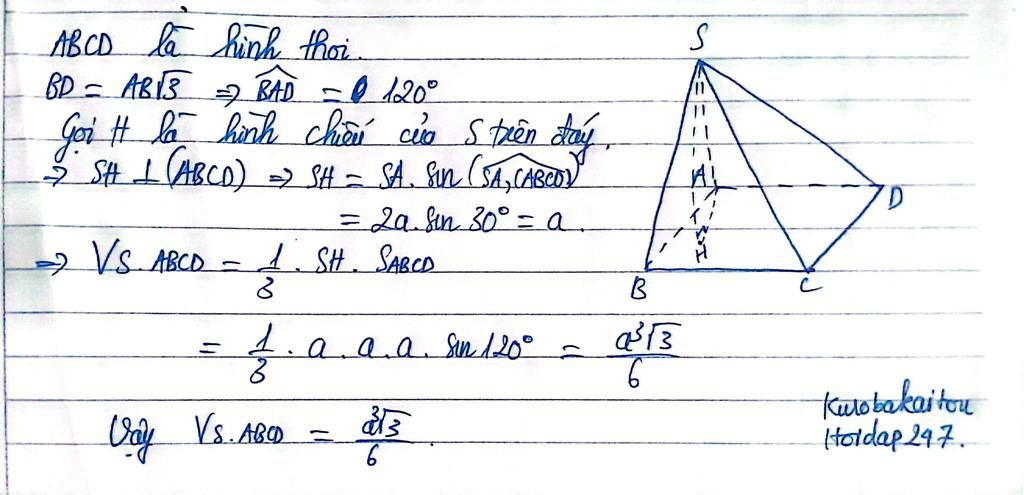 ABCD là hình thoi.
BD = AB√3 ⇒ \widehat{BAD} = 120°
Gọi H là hình chiếu của S trên đáy.
⇒ SH ⊥ (ABCD) ⇒ SH = SA. sin (\widehat{SA, (ABCD)})
= 2a. sin 30° = a.
⇒ VS. ABCD = \frac{1}{3} . SH . SABCD
= \frac{1}{3} . a . a. a. sin 120° = \frac{a³√3}{6}
Vậy VS. ABCD = \frac{a³√3}{6}.
S
A
D
H
B
C
Kurobakaitou
Hoidap247.